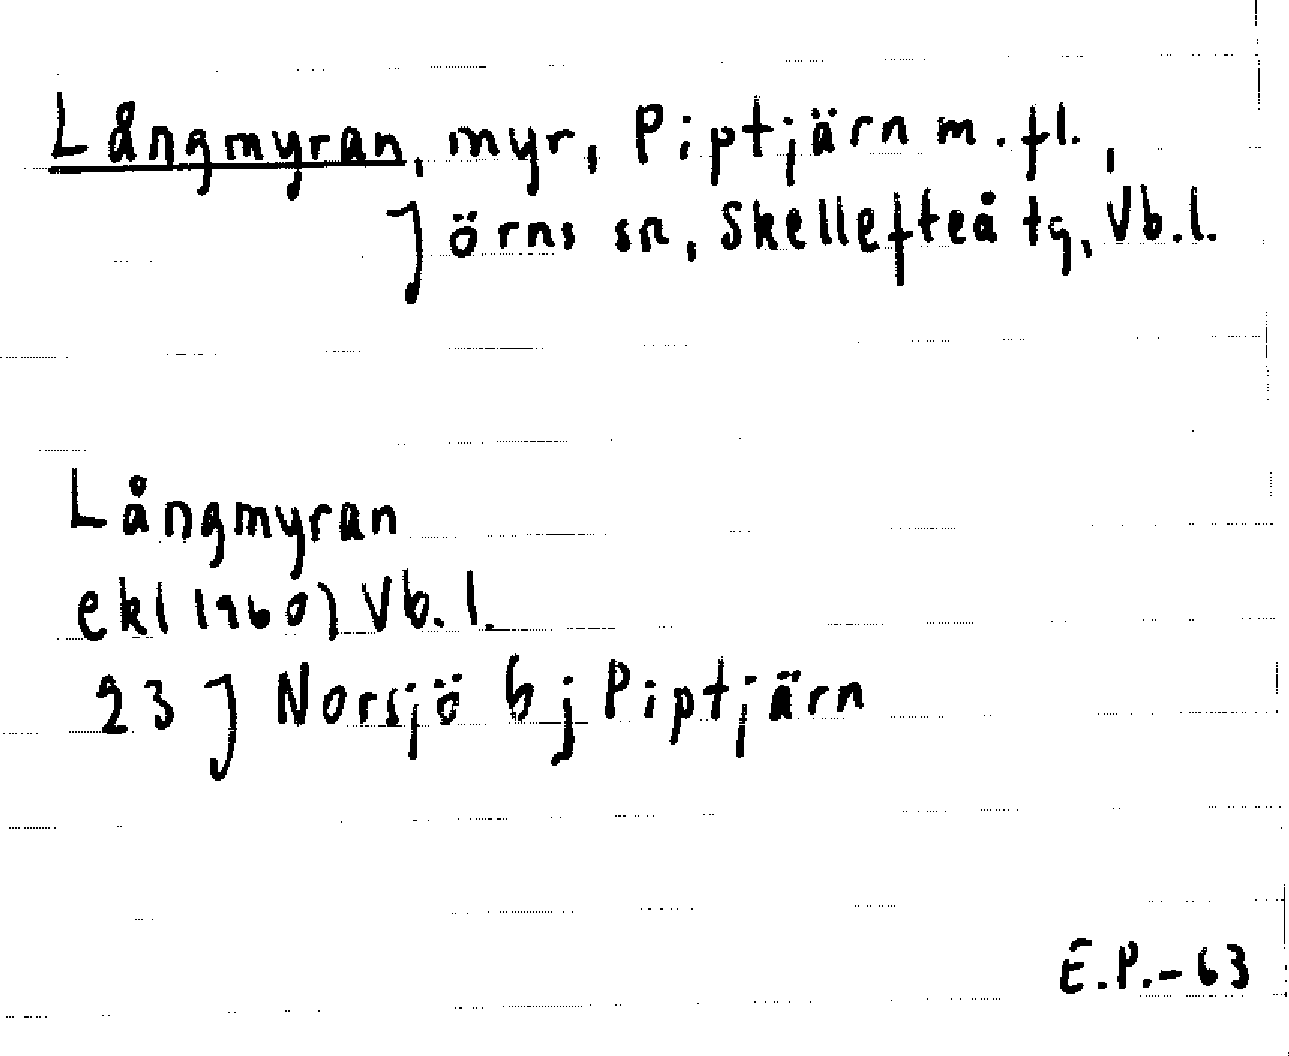 Långmyran, myr, Piptjärn m.fl.,
Jörns sn, Skellefteå tg, Vb.l.
Långmyran
ekl 1960) Vb.l.
23 J Norsjö bj Piptjärn
E.P.-63